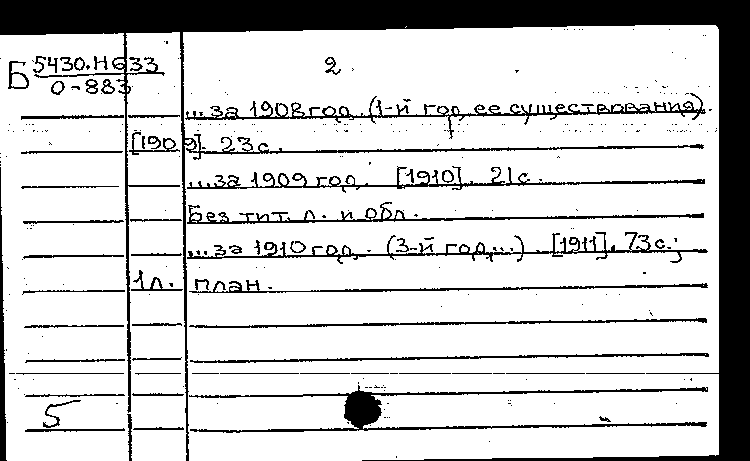 Б 5430.Н633
0-883
2
...за 1908 год. (1-й год ее существования).
[1909]. 23 с.
...за 1909 год. [1910]. 21 с.
Без тит. л. и обл.
...за 1910 год. (3-й год...). [1911]. 73 с.;
1 л. план.
5